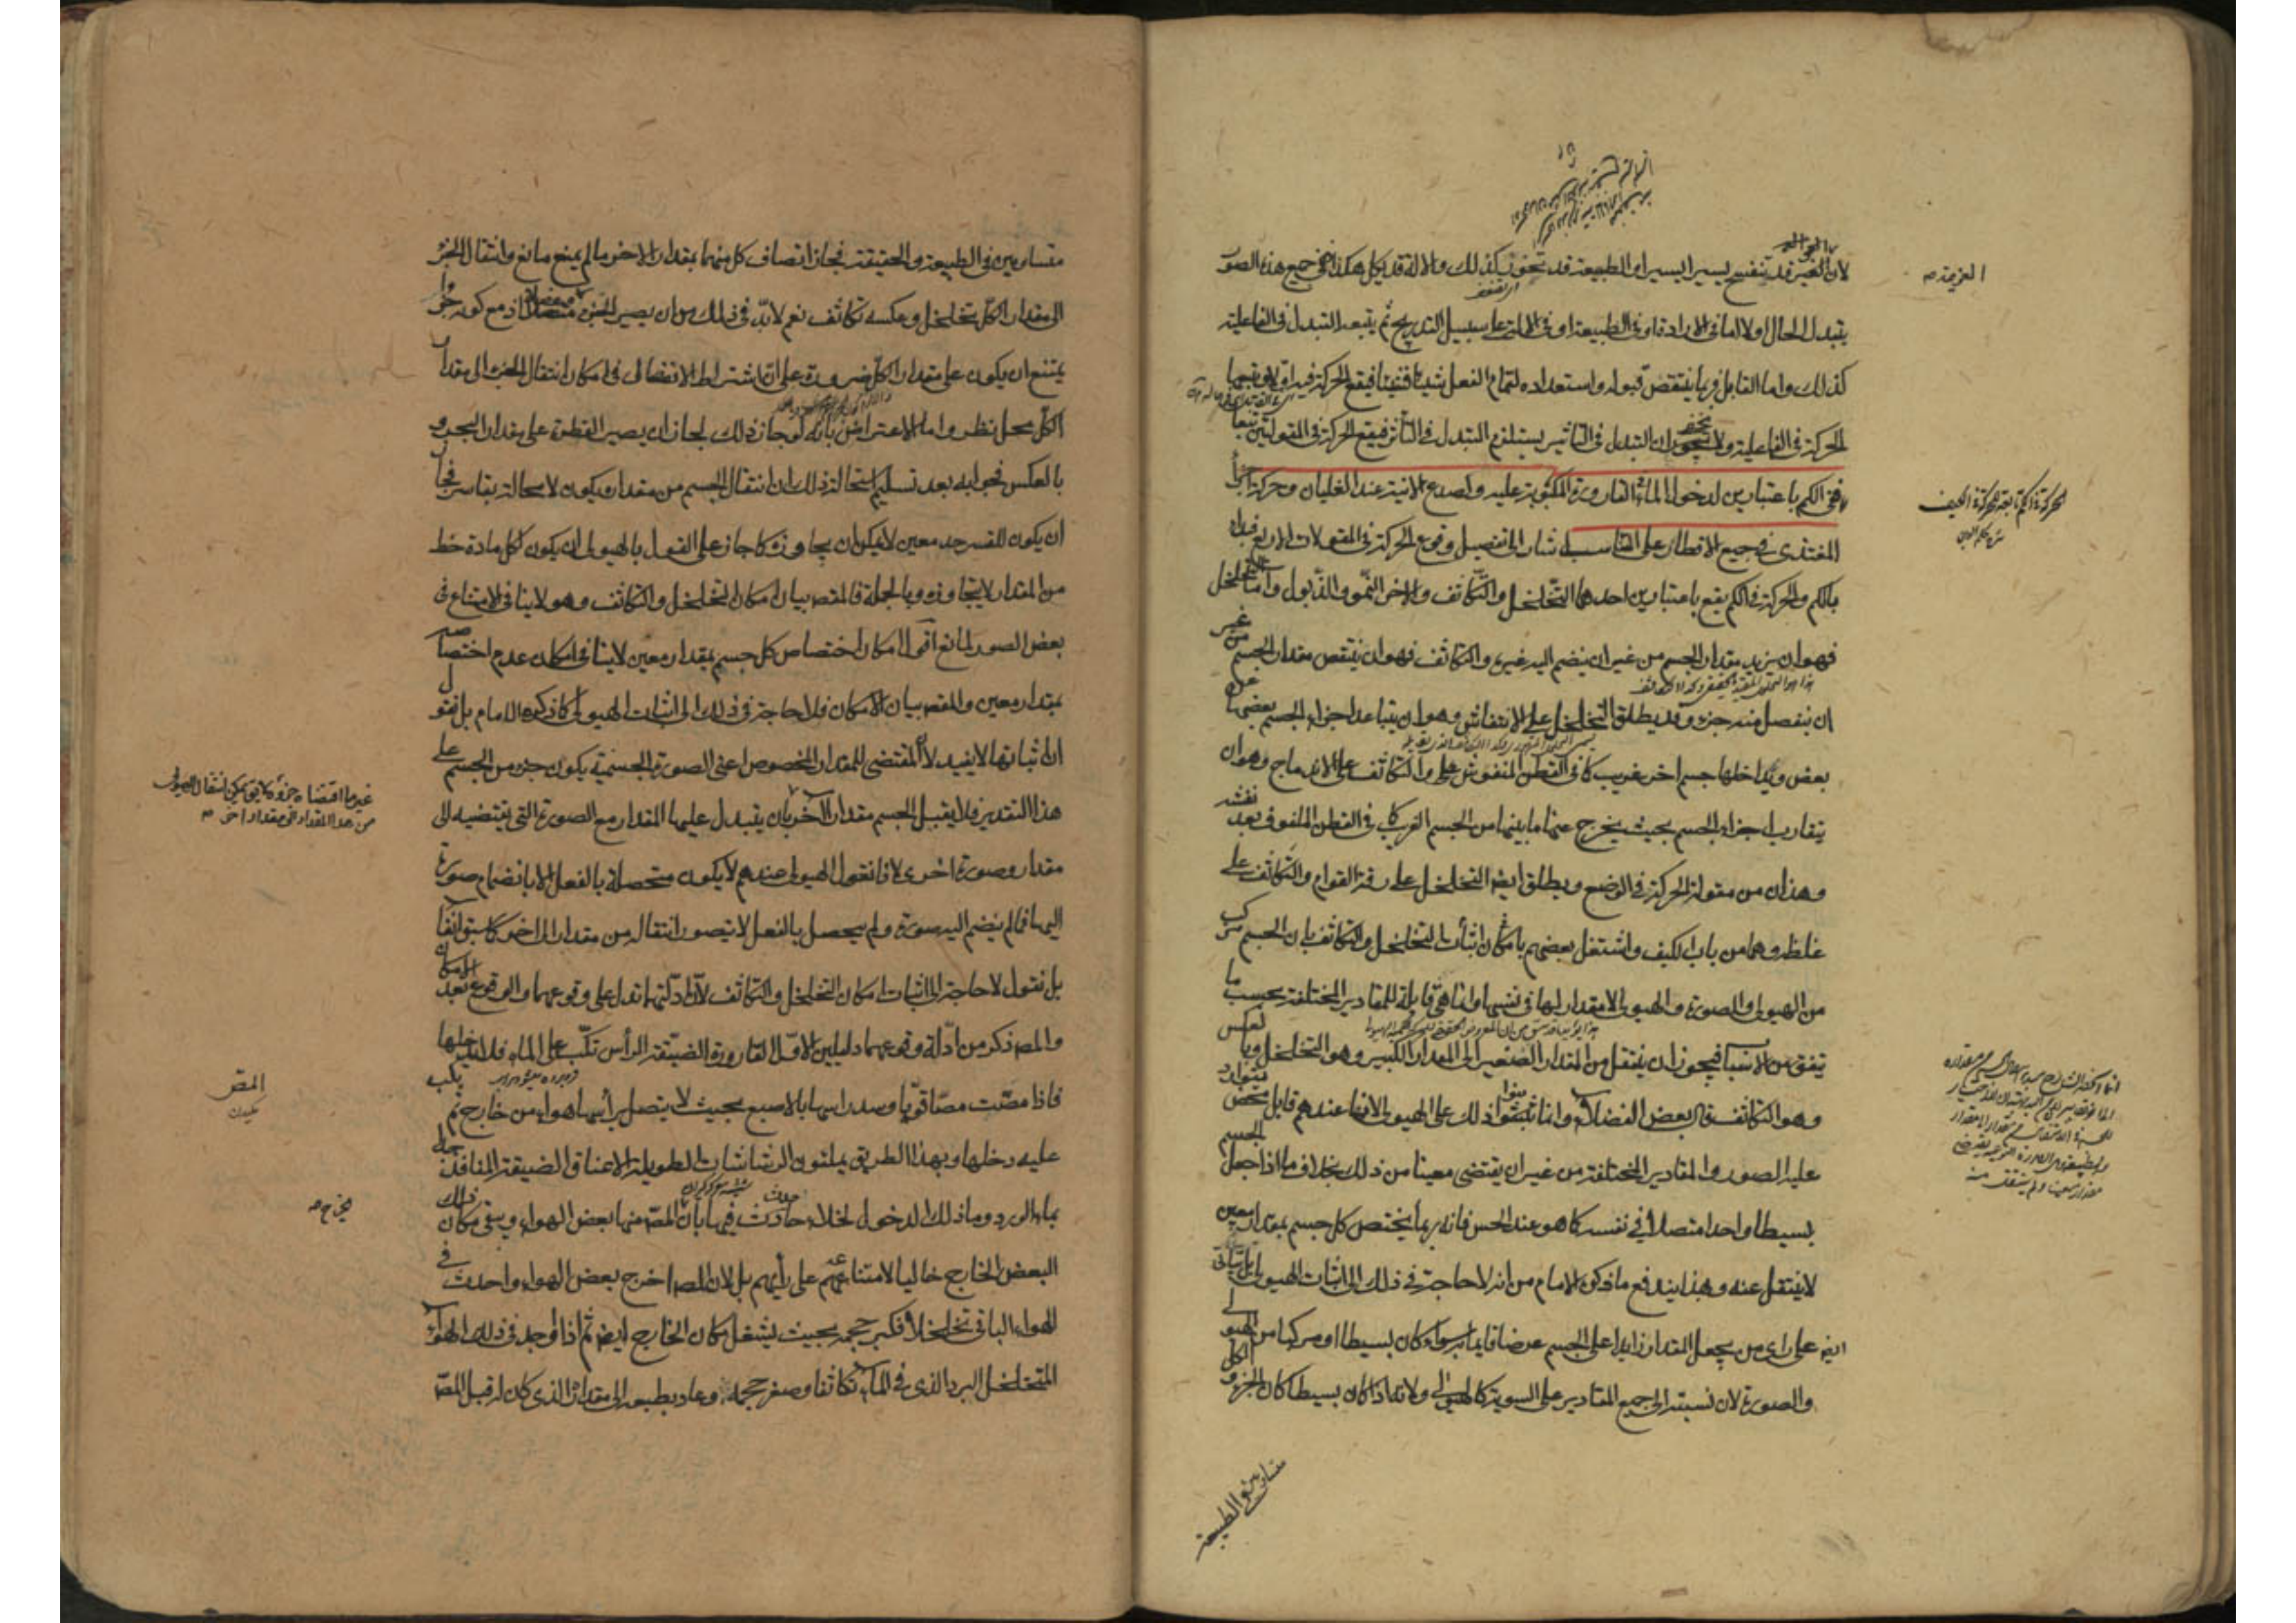 لان الغير قد تنفسخ يسيرا يسيرا والطبيعة قد تخور كذلك والالة قد تكل هكذا ففي جميع هذه الصور
يتبدل الحال اولا اما في الارادة او في الطبيعة او في الالة على سبيل التدريج ثم يتبعه التبدل في الفاعلية
كذلك واما القابل فربما ينتقص قبوله واستعداده لتمام الفعل شيئا فشيئا فيقع الحركة فيه اولا ويتبعها
الحركة في الفاعلية ولا يخفى ان التبدل في التاثير يستلزم التبدل في التأثر فيقع الحركة في المقولتين تبعا
ففي الكم باعتبارين لدخول الماء القارورة المكبوبة عليه وتصدع الانية عند الغليان وحركة اجزاء
المغتذى في جميع الاقطار على التناسب اشار الى تفصيل وقوع الحركة في المقولات الاربع فبدأ
بالكم والحركة في الكم يقع باعتبارين احدهما التخلخل والتكاثف والاخر النمو والذبول واما التخلخل
فهو ان يزيد مقدار الجسم من غير ان ينضم اليه غيره والتكاثف فهو ان ينتقص مقدار الجسم من غير
ان ينفصل منه جزء وقد يطلق التخلخل على الانتفاش وهو ان يتباعد اجزاء الجسم بعضها عن
بعض ويداخلها جسم اخر غريب كما في القطن المنفوش والتكاثف على الاندماج وهو ان
يتقارب اجزاء الجسم بحيث يخرج عنها ما بينها من الجسم الغريب كما في القطن الملفوف بعد نفشه
وهذان من مقولة الحركة في الوضع ويطلق ايضه التخلخل على رقة القوام والتكاثف على
غلظه وهما من باب الكيف واشتغل بعضهم بامكان اثبات التخلخل والتكاثف بان الجسم مركب
من الهيولى والصورة والهيولى لا مقدار لها في نفسها وانما هي قابلة للمقادير المختلفة بحسب ما
يتفق من الاسباب فيجوز ان ينتقل من المقدار الصغير الى المقدار الكبير وهو التخلخل وبالعكس
وهو التكاثف قال بعض الفضلاء وانما بنوا ذلك على الهيولى لانها عندهم قابل محض يتوارد
عليه الصور والمقادير المختلفة من غير ان يقتضي معينا من ذلك بخلاف ما اذا جعل الجسم
بسيطا واحدا متصلا في نفسه كما هو عند الحس فانه ربما يختص كل جسم بمقدار معين
لا ينتقل عنه وبهذا يندفع ما ذكره الامام من انه لا حاجة في ذلك الى اثبات الهيولى بل يتأتى
ايضه على راي من يجعل المقدار زايدا على الجسم عرضا قايما به سواء كان بسيطا او مركبا من الهيولى
والصورة لان نسبته الى جميع المقادير على السوية كالهيولى ولانه اذا كان بسيطا كان الجزء والكل
متساويين في الطبيعة
العزيمة صه
الحركة في الكم تابعة للحركة في الكيف
متساويين في الطبيعة والحقيقة فجاز اتصاف كل منهما بمقدار الاخر ما لم يمنع مانع وانتقال الجزء
الى مقدار الكل تخلخل وعكسه تكاثف نعم لا بد في ذلك من ان يصير الجزء منفصلا اذ مع كونه جزءا
يمتنع ان يكون على مقدار الكل ضرورة على ان اشتراط الانفصال في امكان انتقال الجزء الى مقدار
الكل محل نظر واما الاعتراض بانه لو جاز ذلك لجاز ان يصير القطرة على مقدار البحر و
بالعكس فجوابه بعد تسليم استحالة ذلك ان انتقال الجسم من مقداره يكون لا محالة بقاسر فجاز
ان يكون للقسر حد معين لا يمكن ان يجاوزه كما جاز على القول بالهيولى ان يكون لكل مادة خط
من المقدار لا يتجاوزه وبالجملة فالمقصه بيان امكان التخلخل والتكاثف وهو لا ينافي الامتناع في
بعض الصور لمانع اقول امكان اختصاص كل جسم بمقدار معين لا ينافي امكان عدم اختصاصه
بمقدار معين والمقصه بيان الامكان فلا حاجة في ذلك الى اثبات الهيولى كما ذكره الامام بل نقول
ان اثباتها لا يفيد لان المقتضى للمقدار المخصوص اعني الصورة الجسمية يكون جزء من الجسم على
هذا التقدير فلا يقبل الجسم مقدار الآخر بان يتبدل عليها المقدار مع الصورة التي يقتضيه الى
مقدار وصورة اخرى لانا نقول الهيولى عندهم لا يكون متحصلة بالفعل الا بانضمام صورة
اليها فما لم ينضم اليه صورة ولم يحصل بالفعل لا يتصور انتقاله من مقدار الى اخر كما سبق آنفا
بل نقول لا حاجة الى اثبات امكان التخلخل والتكاثف لان ادلتهما تدل على وقوعهما والوقوع بعد الامكان
والمصه ذكر من ادلة وقوعهما دليلين الاول القارورة الضيقة الرأس تكب على الماء فلا يدخلها
فاذا مصت مصا قويا وسد راسها بالاصبع بحيث لا يتصل برأسها هواء من خارج ثم يكب
عليه دخلها وبهذا الطريق يملئون الرشاشات الطويلة الاعناق الضيقة المنافذ جدا
بماء الورد وما ذلك الدخول لخلاء حادث فيها بان المص منها بعض الهواء ويبقى مكان ذلك
البعض الخارج خاليا لامتناعه على رأيهم بل لان المص اخرج بعض الهواء واحدث في
الهواء الباقي تخلخلا فكبر حجمه بحيث يشغل مكان الخارج ايضه ثم اذا وجد في ذلك الهواء
المتخلخل البرد الذي في الماء تكاثفا وصغر حجمه وعاد بطبعه الى مقداره الذي كان له قبل المص
غير ما اقتضاه جزؤه لا يق يمكن انتقال الهيولى
من هذا المقدار الى مقدار اخر صه
المص
يخرج صه